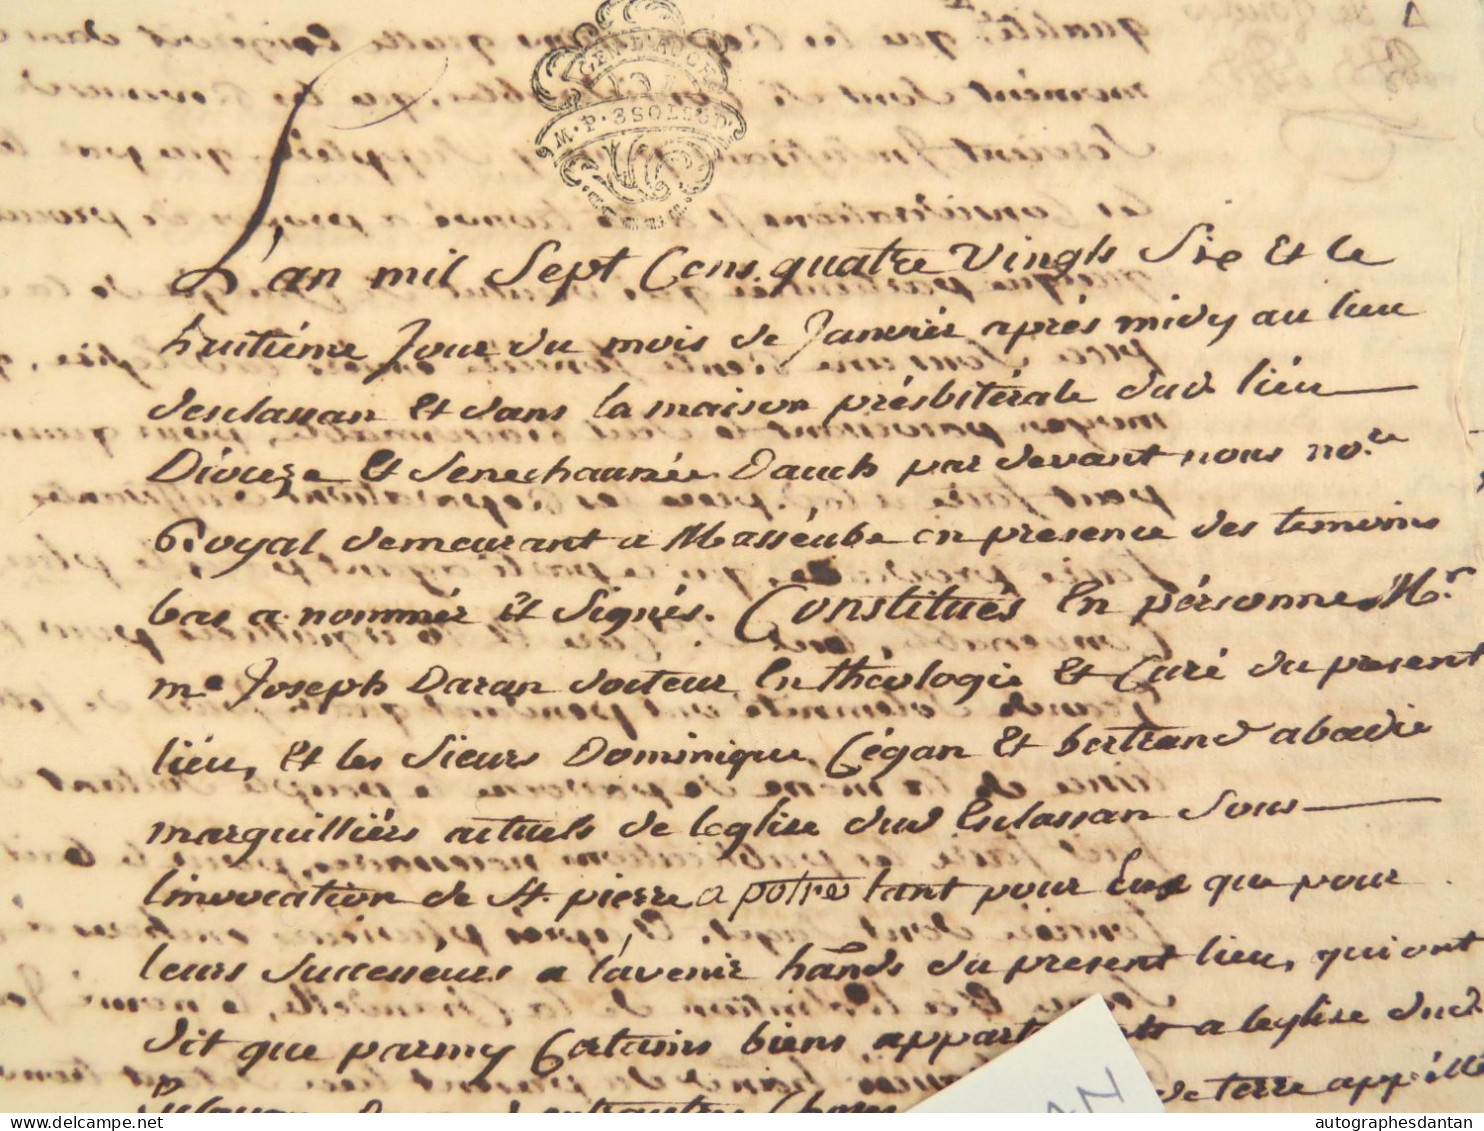 GEN. D'AUCH
M. P. 3 SOLS 8 D.
L'an mil Sept Cens quatre Vingts Six Et le
huitiéme Jour du mois de Janvier aprés midy au lieu
desclassan et dans la maison présbitérale dud lieu
Dioceze Et Senechaussée Dauch par devant nous no.re
Royal demeurant a Masséube en presence des temoins
bas a nommér Et Signés. Constitués En pérsonne Mr.
me Joseph Daran docteur En théologie Et Curé du present
liéu, Et les Sieurs Dominique Cégan Et bertrand abadie
marguilliérs actuels de leglise dud Esclassan Sous
linvocation de St. pierre a potre tant pour Eux que pour
leurs Successéurs a lávenir hands du present lieu, qui ont
dit que parmy Certains biens appart a leglise dud
de terre appéllé
autographesdantan